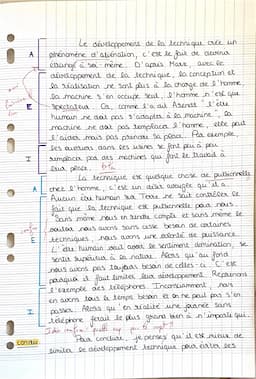 Le développement de la technique crée un
A phénomène d'aliénation, c'est le fait de devenir
étranger à soi même. D'après Marx, avec le
développement de la technique, la conception et
la réalisation ne sont plus à la charge de l'homme
la machine s'en occupe seul. L'homme n'est que
E spectateur. Or, comme l'a dit Arendt "l'être
humain ne doit pas s'adapter à la machine", la
machine ne doit pas remplacer l'homme, elle peut
l'aider mais pas prendre sa place. Par exemple,
les ouvriers dans les usines se font peu à peu
I remplacer par des machines qui font le travail à
leur place.
La technique est quelque chose de pulsionnelle
A chez l'homme, c'est un désir aveugle qu'il a.
Aucun être humain sur Terre ne sait contrôler ce
fait que la technique est pulsionnelle pour nous.
Sans même nous en rendre compte et sans même le
vouloir nous avons sans cesse besoin de certaines
E techniques, nous avons une volonté de puissance.
L'être humain veut avoir le sentiment domination, se
sentir supérieur à la nature. Alors qu'au fond
nous avons pas toujours besoin de celles-ci. C'est
pourquoi il faut limiter leur développement. Reprenons
l'exemple des téléphones. Inconsciemment, nous
en avons tous le temps besoin et on ne peut pas s'en
I passer. Alors qu'en réalité une journée sans
téléphone ferait le plus grand bien à n'importe qui.
conclu Pour conclure, je penses qu'il est mieux de
limiter le développement technique pour éviter ses